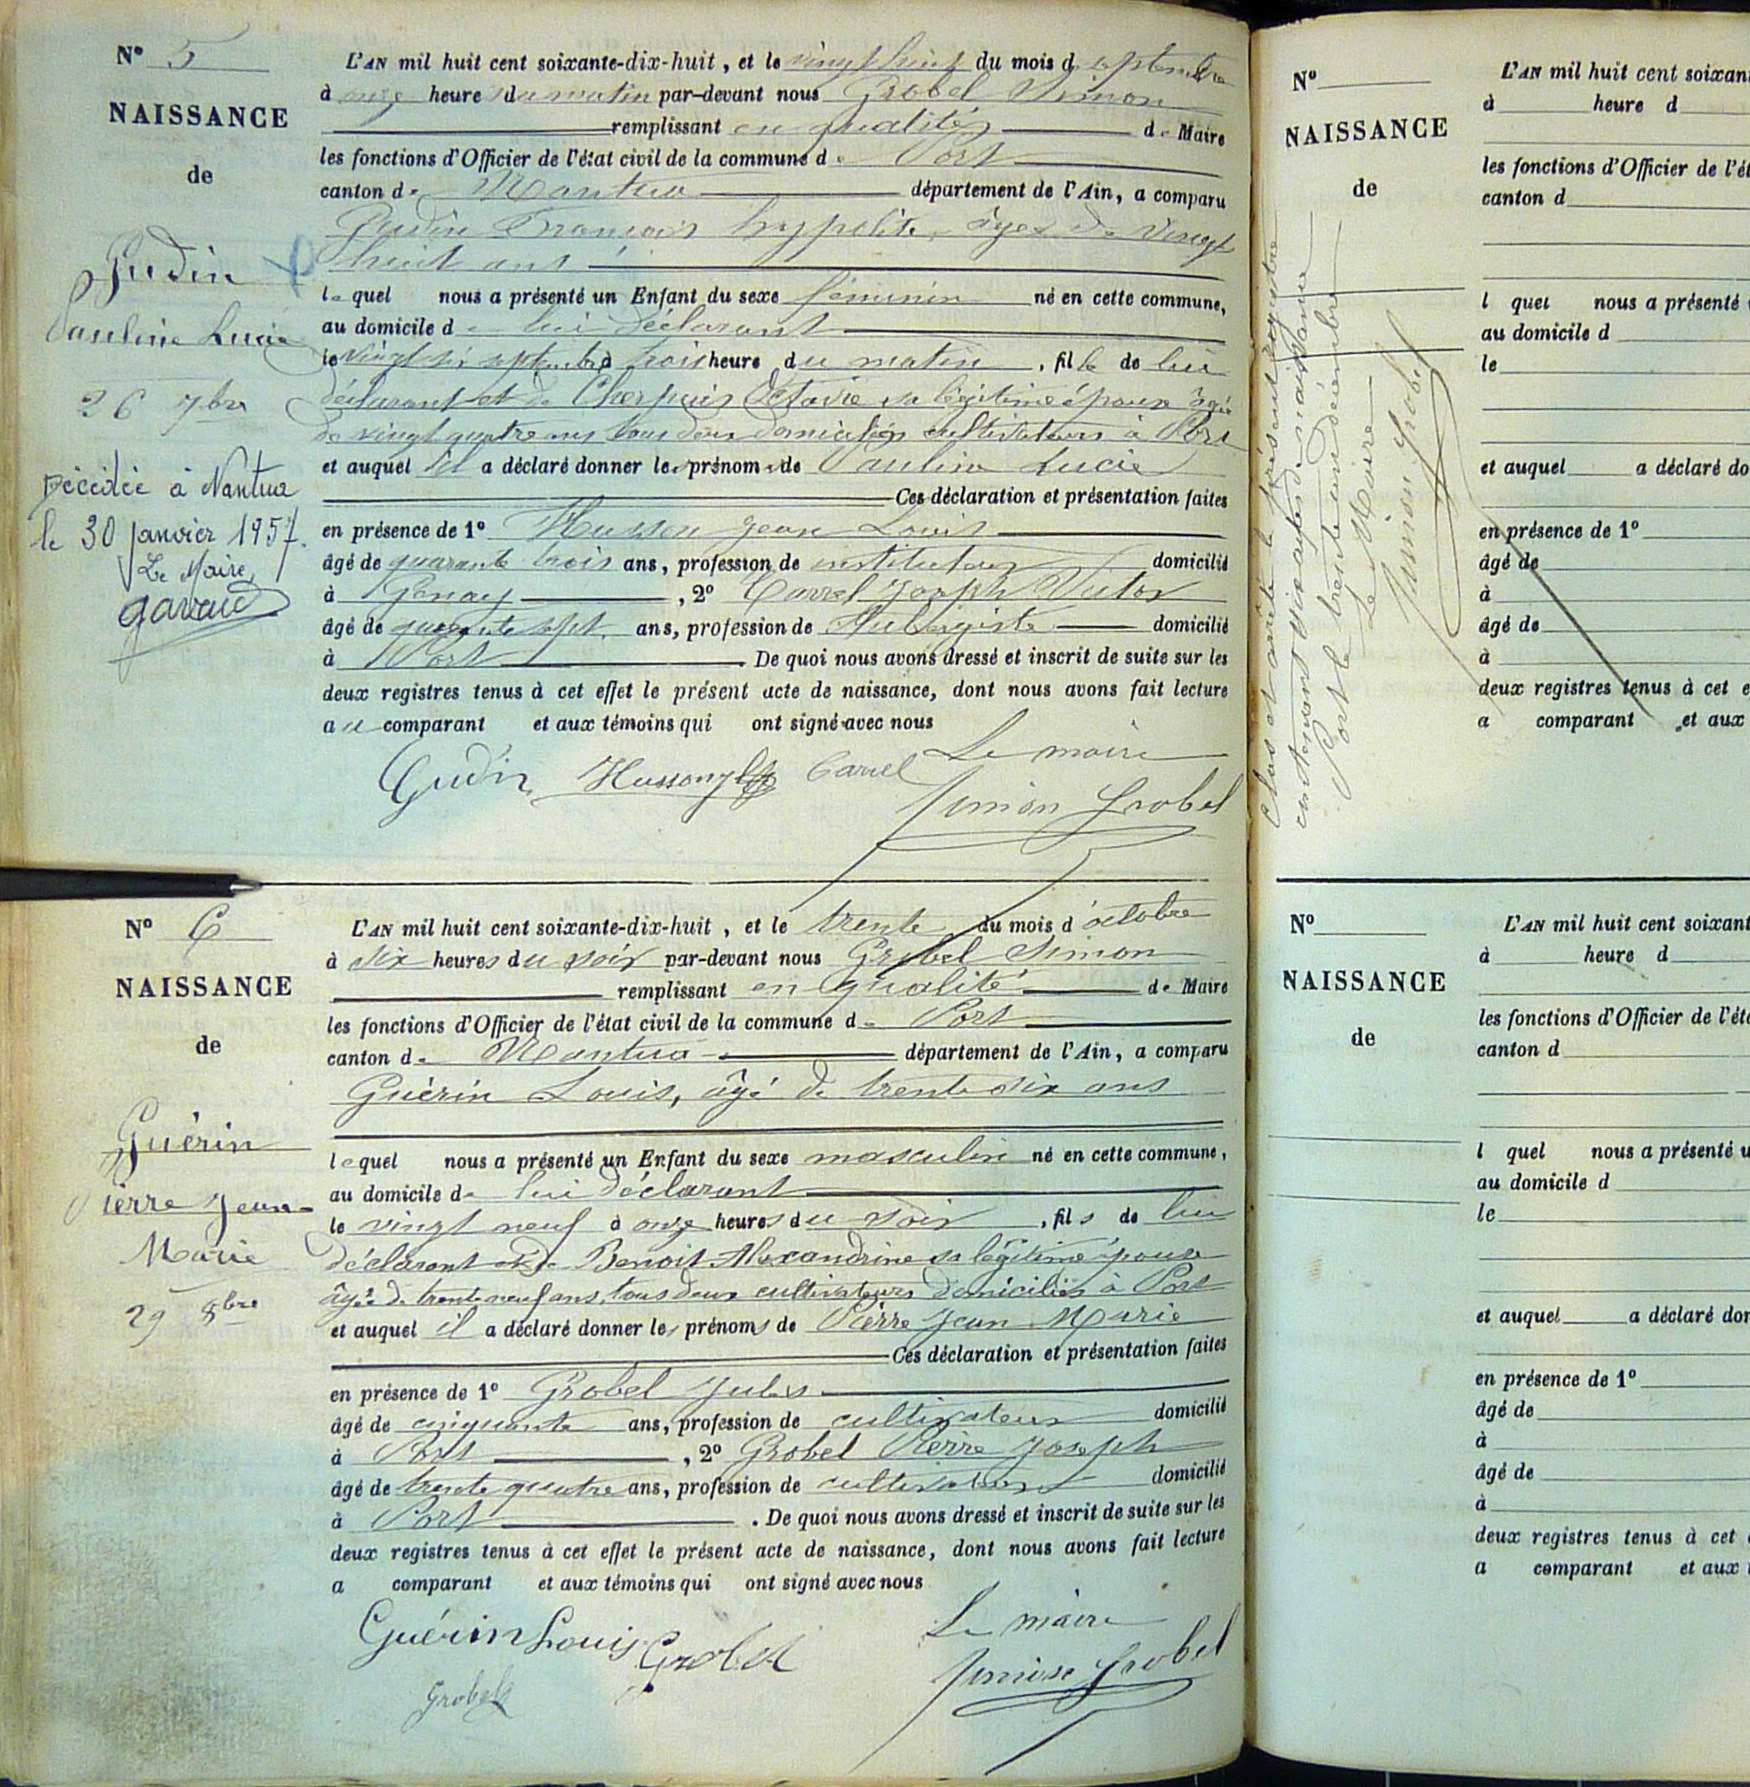 N° 5
NAISSANCE
de
Gudin
Pauline Lucie
26 7bre
Décédée à Nantua
le 30 janvier 1957.
Le Maire,
L'AN mil huit cent soixante-dix-huit, et le vingt huit du mois d septembre
à onze heure du matin par-devant nous Grobel Simon
remplissant en qualité de Maire
les fonctions d'Officier de l'état civil de la commune de Port
canton de Nantua département de l'Ain, a comparu
Gudin François hyppolite, âgé de vingt
huit ans
lequel nous a présenté un Enfant du sexe féminin né en cette commune,
au domicile de lui déclarant
le vingt six septembre à trois heure du matin, fille de lui
déclarant et de Cherpuis Octavie sa légitime épouse âgée
de vingt quatre ans tous deux domiciliés cultivateurs à Port
et auquel il a déclaré donner les prénoms de Pauline Lucie
Ces déclaration et présentation faites
en présence de 1° Husson Jean Louis
âgé de quarante trois ans, profession de instituteur domicilié
à Genay, 2° Carrel Joseph Victor
âgé de quarante sept ans, profession de Aubergiste domicilié
à Port. De quoi nous avons dressé et inscrit de suite sur les
deux registres tenus à cet effet le présent acte de naissance, dont nous avons fait lecture
au comparant et aux témoins qui ont signé avec nous
Le maire
Gudin Husson Carrel
Simon Grobel
N° 6
NAISSANCE
de
Guérin
Pierre Jean
Marie
29 8bre
L'AN mil huit cent soixante-dix-huit, et le trente du mois d'octobre
à six heures du soir par-devant nous Grobel Simon
remplissant en qualité de Maire
les fonctions d'Officier de l'état civil de la commune de Port
canton de Nantua département de l'Ain, a comparu
Guérin Louis, âgé de trente six ans
lequel nous a présenté un Enfant du sexe masculin né en cette commune,
au domicile de lui déclarant
le vingt neuf à onze heures du soir, fils de lui
déclarant et de Benoit Alexandrine sa légitime épouse
âgée de trente neuf ans, tous deux cultivateurs domiciliés à Port
et auquel il a déclaré donner les prénoms de Pierre Jean Marie
Ces déclaration et présentation faites
en présence de 1° Grobel Jules
âgé de cinquante ans, profession de cultivateur domicilié
à Port, 2° Grobel Pierre Joseph
âgé de trente quatre ans, profession de cultivateur domicilié
à Port. De quoi nous avons dressé et inscrit de suite sur les
deux registres tenus à cet effet le présent acte de naissance, dont nous avons fait lecture
a comparant et aux témoins qui ont signé avec nous
Le maire
Guérin Louis Grobel
Simon Grobel
Grobel
Clos et arrêté le présent registre
contenant six actes de naissance
Port le trente un décembre
Le Maire
Simon Grobel
N°
NAISSANCE
de
L'AN mil huit cent soixan
à heure d
les fonctions d'Officier de l'ét
canton d
l quel nous a présenté
au domicile d
le
et auquel a déclaré do
en présence de 1°
âgé de
à
âgé de
à
deux registres tenus à cet e
a comparant et aux
N°
NAISSANCE
de
L'AN mil huit cent soixant
à heure d
les fonctions d'Officier de l'éta
canton d
l quel nous a présenté u
au domicile d
le
et auquel a déclaré don
en présence de 1°
âgé de
à
âgé de
à
deux registres tenus à cet
a comparant et aux